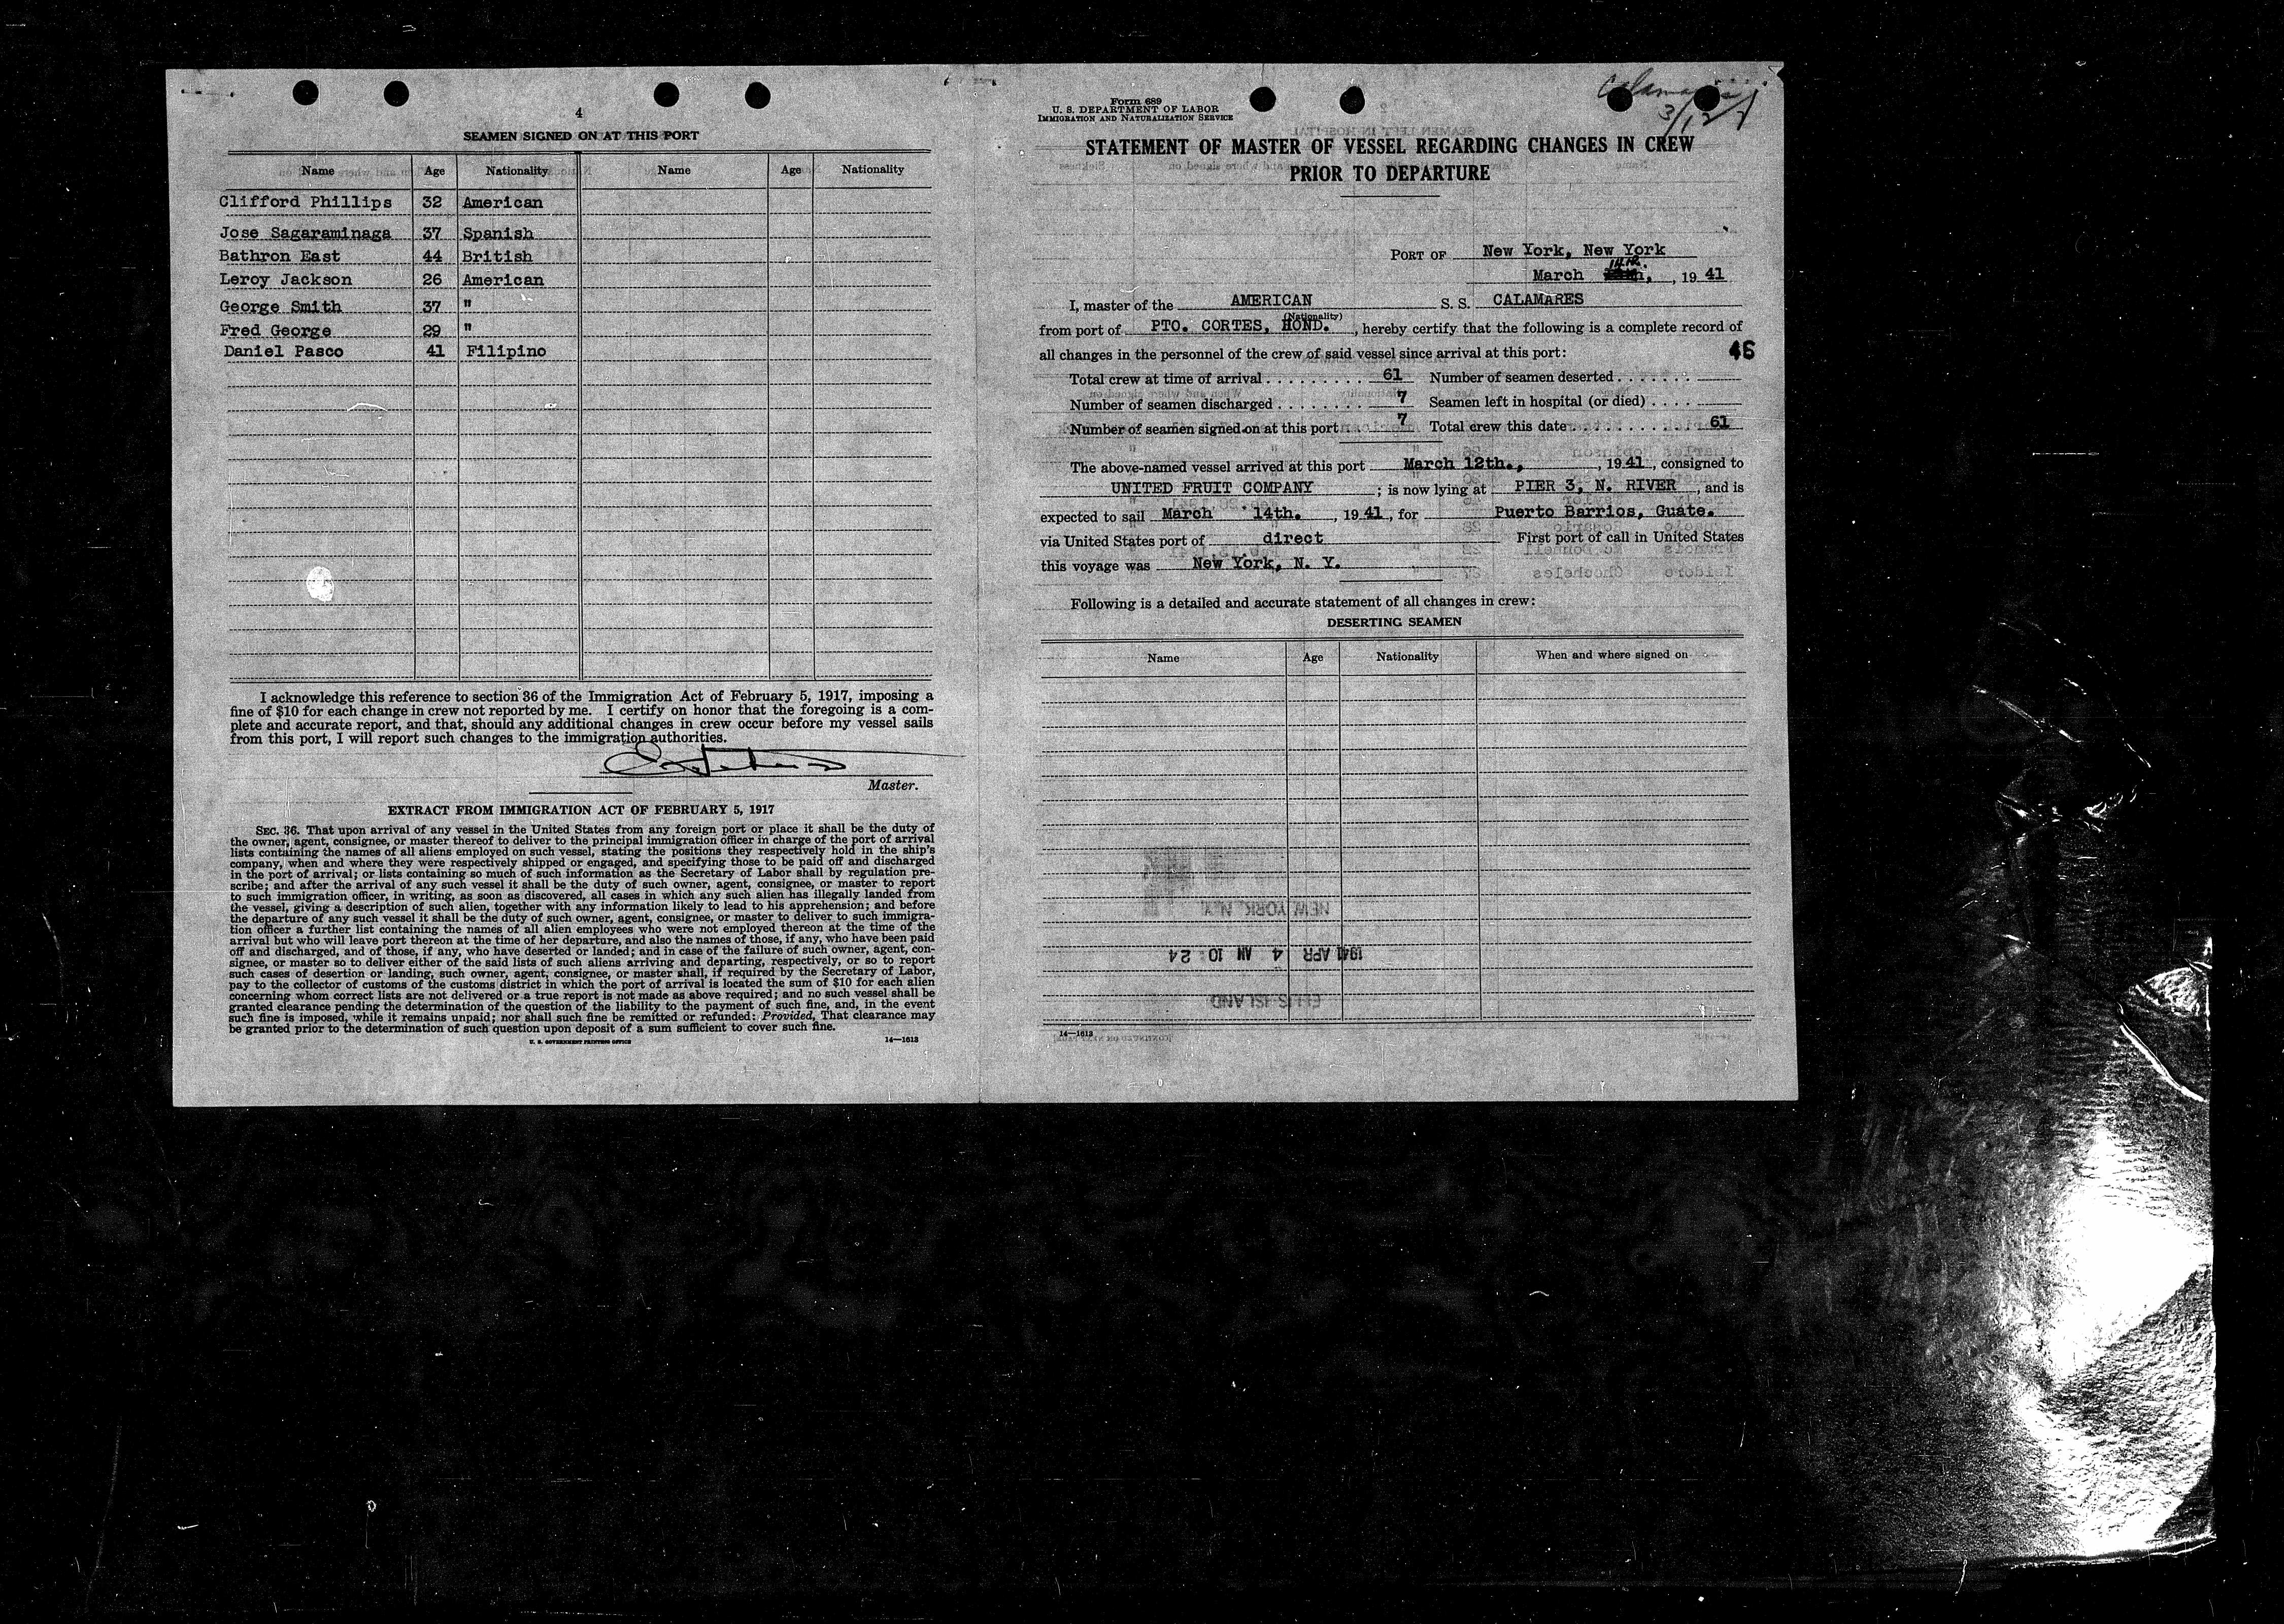 4
SEAMEN SIGNED ON AT THIS PORT
Name Age Nationality Name Age Nationality
Clifford Phillips 32 American
Jose Sagaraminaga 37 Spanish
Bathron East 44 British
Leroy Jackson 26 American
George Smith 37 "
Fred George 29 "
Daniel Pasco 41 Filipino
I acknowledge this reference to section 36 of the Immigration Act of February 5, 1917, imposing a
fine of $10 for each change in crew not reported by me. I certify on honor that the foregoing is a com-
plete and accurate report, and that, should any additional changes in crew occur before my vessel sails
from this port, I will report such changes to the immigration authorities.
Master.
EXTRACT FROM IMMIGRATION ACT OF FEBRUARY 5, 1917
SEC. 36. That upon arrival of any vessel in the United States from any foreign port or place it shall be the duty of
the owner, agent, consignee, or master thereof to deliver to the principal immigration officer in charge of the port of arrival
lists containing the names of all aliens employed on such vessel, stating the positions they respectively hold in the ship's
company, when and where they were respectively shipped or engaged, and specifying those to be paid off and discharged
in the port of arrival; or lists containing so much of such information as the Secretary of Labor shall by regulation pre-
scribe; and after the arrival of any such vessel it shall be the duty of such owner, agent, consignee, or master to report
to such immigration officer, in writing, as soon as discovered, all cases in which any such alien has illegally landed from
the vessel, giving a description of such alien, together with any information likely to lead to his apprehension; and before
the departure of any such vessel it shall be the duty of such owner, agent, consignee, or master to deliver to such immigra-
tion officer a further list containing the names of all alien employees who were not employed thereon at the time of the
arrival but who will leave port thereon at the time of her departure, and also the names of those, if any, who have been paid
off and discharged, and of those, if any, who have deserted or landed; and in case of the failure of such owner, agent, con-
signee, or master so to deliver either of the said lists of such aliens arriving and departing, respectively, or so to report
such cases of desertion or landing, such owner, agent, consignee, or master shall, if required by the Secretary of Labor,
pay to the collector of customs of the customs district in which the port of arrival is located the sum of $10 for each alien
concerning whom correct lists are not delivered or a true report is not made as above required; and no such vessel shall be
granted clearance pending the determination of the question of the liability to the payment of such fine, and, in the event
such fine is imposed, while it remains unpaid; nor shall such fine be remitted or refunded: Provided, That clearance may
be granted prior to the determination of such question upon deposit of a sum sufficient to cover such fine.
U. S. GOVERNMENT PRINTING OFFICE 14—1613
Calamares
3/12
Form 689
U. S. DEPARTMENT OF LABOR
IMMIGRATION AND NATURALIZATION SERVICE
STATEMENT OF MASTER OF VESSEL REGARDING CHANGES IN CREW
PRIOR TO DEPARTURE
PORT OF New York, New York
March 14th, 1941
I, master of the AMERICAN S. S. CALAMARES
(Nationality)
from port of PTO. CORTES, HOND., hereby certify that the following is a complete record of
all changes in the personnel of the crew of said vessel since arrival at this port:
46
Total crew at time of arrival . . . . . . . . . 61 Number of seamen deserted . . . . . . .
Number of seamen discharged . . . . . . . . 7 Seamen left in hospital (or died) . . . .
Number of seamen signed on at this port 7 Total crew this date . . . . . . . . . . 61
The above-named vessel arrived at this port March 12th., , 1941, consigned to
UNITED FRUIT COMPANY ; is now lying at PIER 3, N. RIVER , and is
expected to sail March 14th. , 1941, for Puerto Barrios, Guate.
via United States port of direct First port of call in United States
this voyage was New York, N. Y.
Following is a detailed and accurate statement of all changes in crew:
DESERTING SEAMEN
Name Age Nationality When and where signed on
NEW YORK, N.Y.
1941 APR 4 AM 10 24
ELLIS ISLAND
14—1613